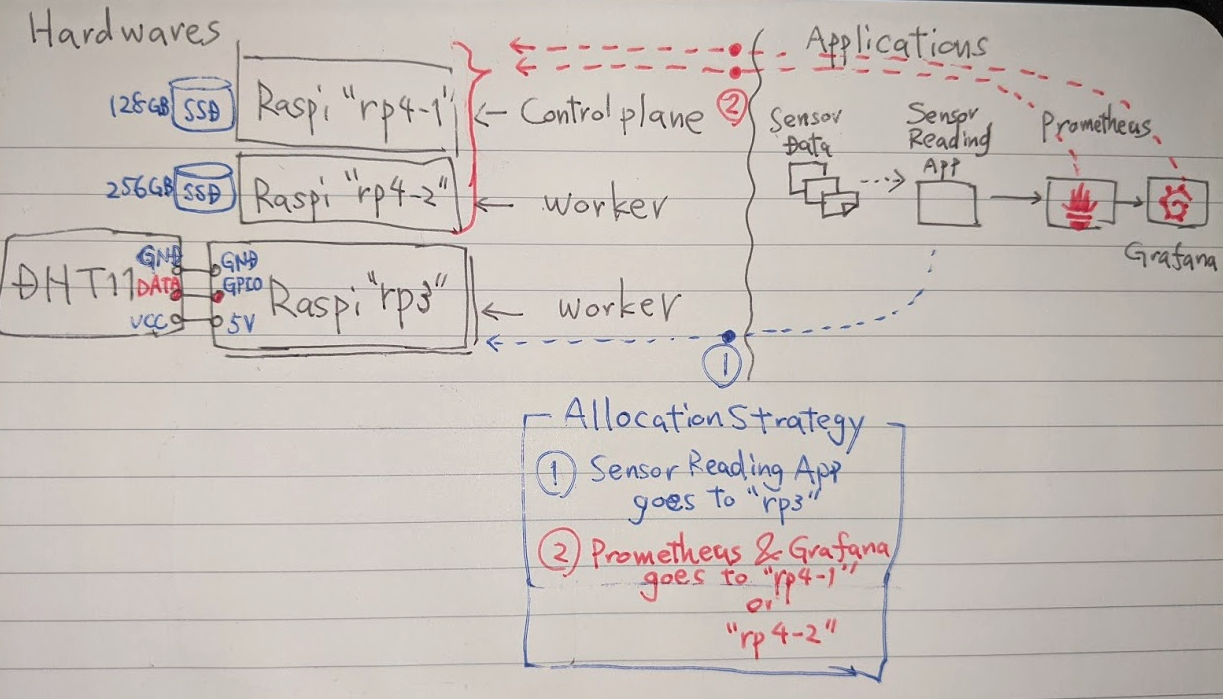 Hardwares
128GB
SSD
Raspi "rp4-1"
Control plane
256GB
SSD
Raspi "rp4-2"
worker
DHT11
GND
DATA
VCC
GND
GPIO
5V
Raspi "rp3"
worker
②
①
Applications
Sensor
Data
Sensor
Reading
App
Prometheus
Grafana
Allocation Strategy
① Sensor Reading App
goes to "rp3"
② Prometheus & Grafana
goes to "rp4-1"
or
"rp4-2"